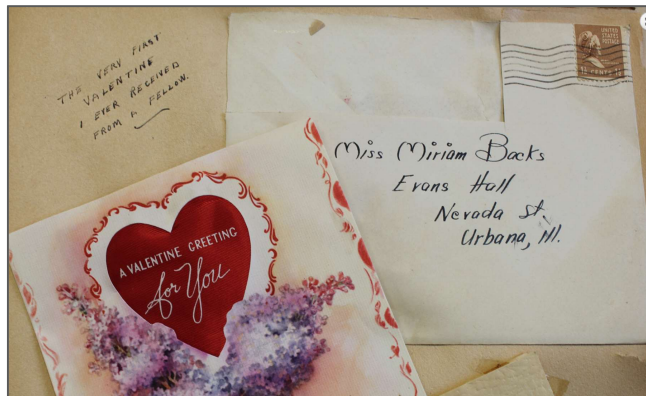 THE VERY FIRST
VALENTINE
I EVER RECEIVED
FROM A FELLOW.
UNITED
STATES
POSTAGE
1½ CENTS
Miss Miriam Backs
Evans Hall
Nevada St.
Urbana, Ill.
A VALENTINE GREETING
for You